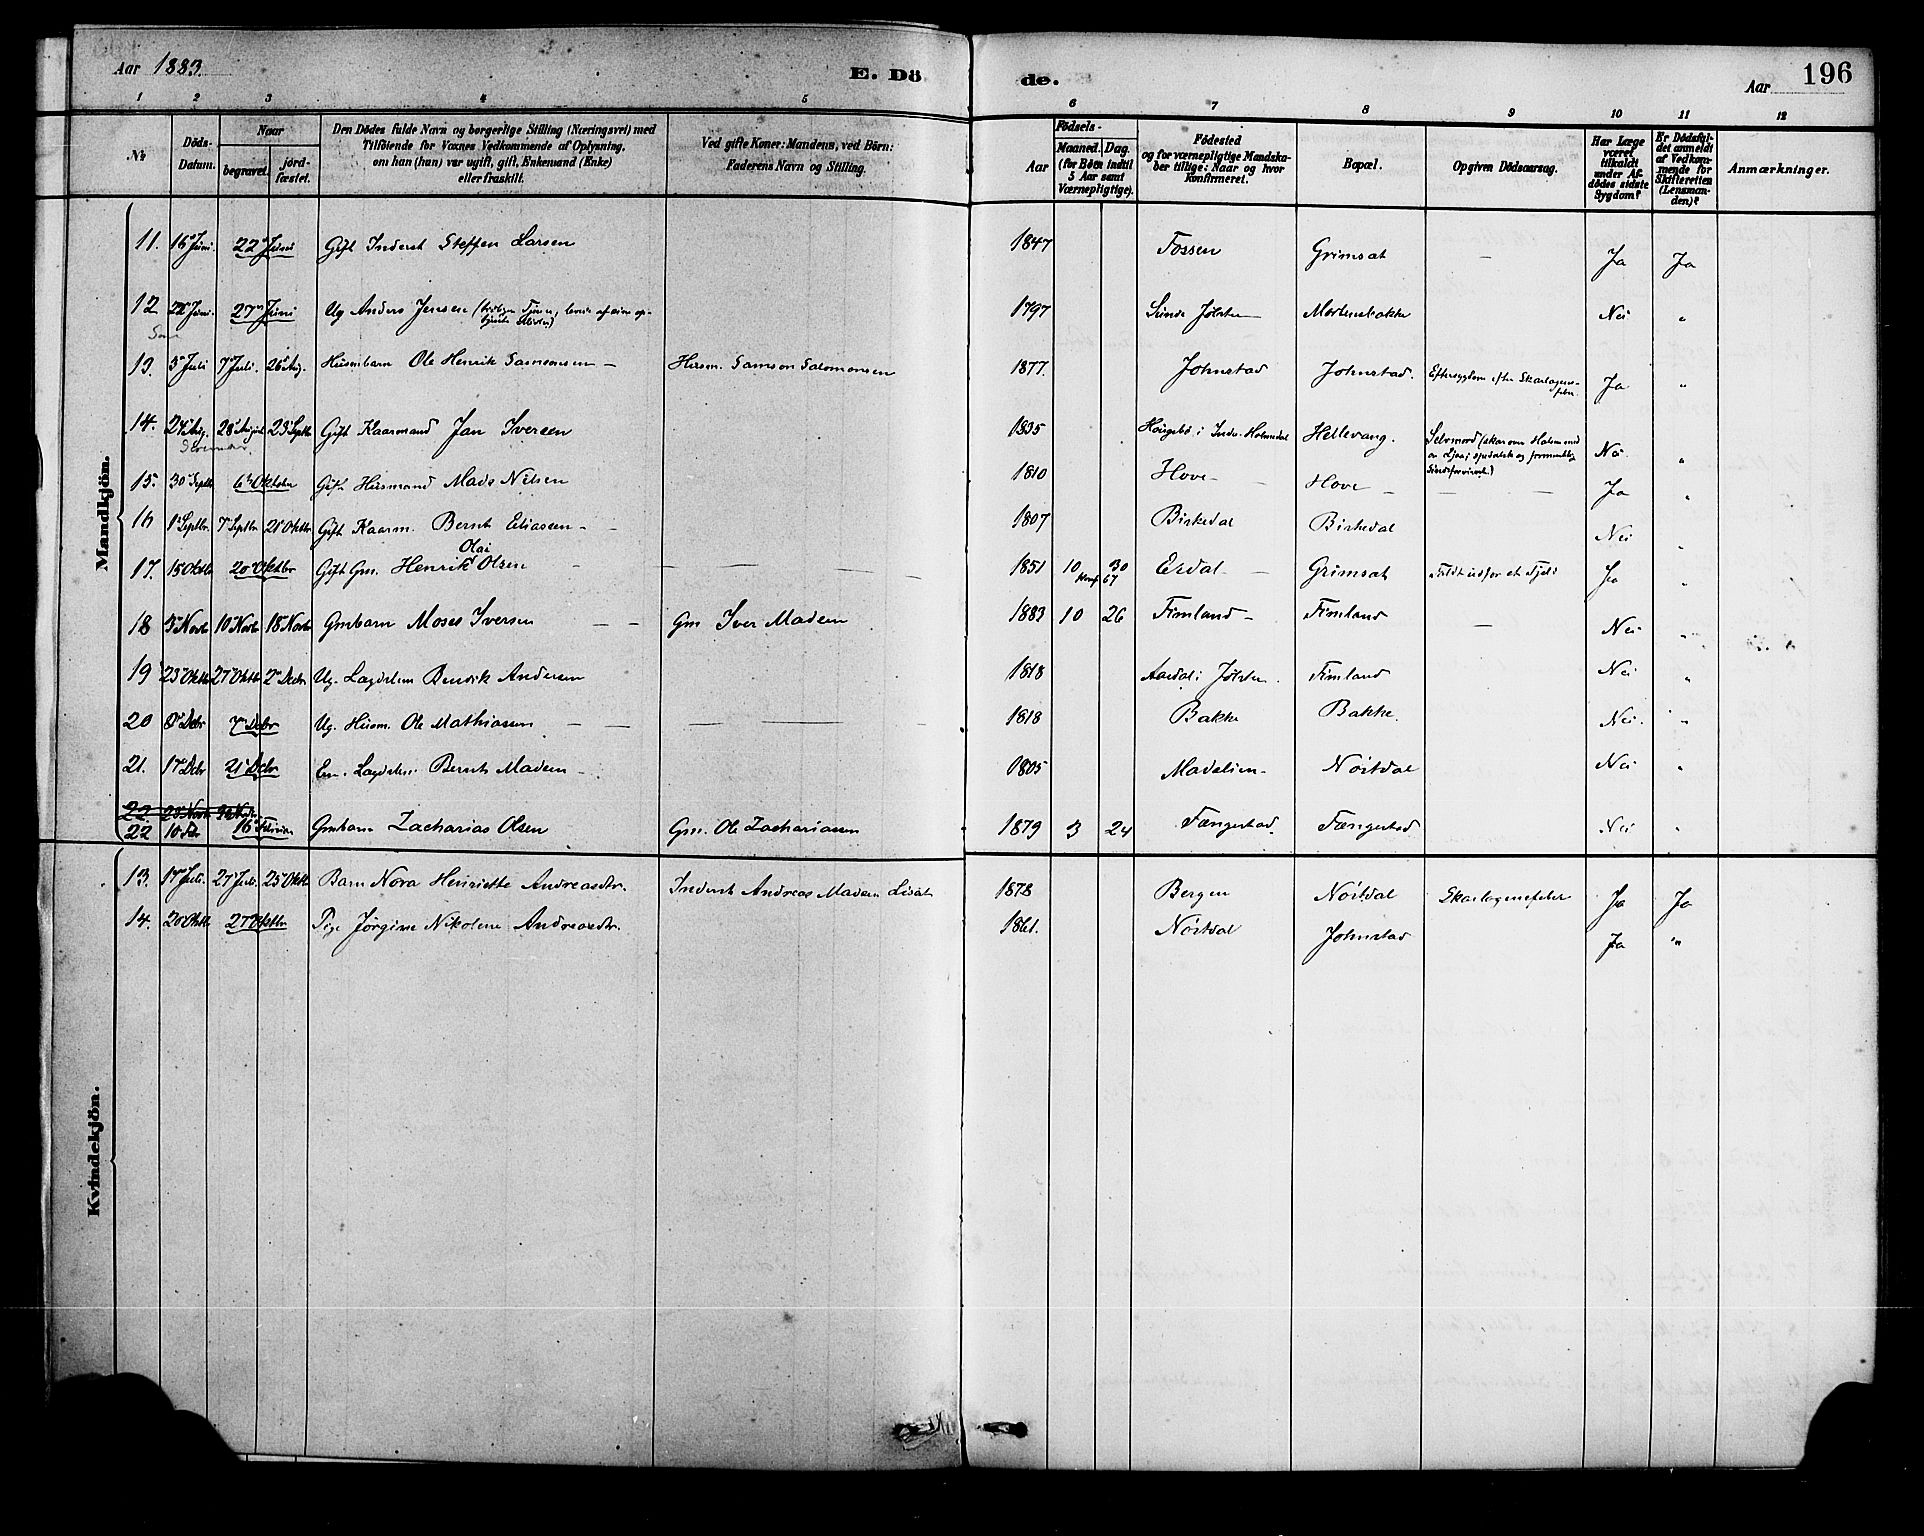 Aar 1883.
E. Dö
de.
Aar
196
1 2 3 4 5 6 7 8 9 10 11 12
No
Döds-Datum.
Naar
begravet.
jordfæstet.
Den Dödes fulde Navn og borgerlige Stilling (Næringsvei) med
Tilföiende for Voxnes Vedkommende af Oplysning,
om han (hun) var ugift, gift, Enkemand (Enke)
eller fraskilt.
Ved gifte Koner: Mandens, ved Börn:
Faderens Navn og Stilling.
Födsels-
Aar
Maaned. Dag.
(for Börn indtil
5 Aar samt
Værnepligtige).
Födested
og for værnepligtige Mandska-
ber tillige: Naar og hvor
konfirmeret.
Bopæl.
Opgiven Dödsaarsag.
Har Læge
været
tilkaldt
under Af-
dödes sidste
Sygdom?
Er Dödsfal-
det anmeldt
af Vedkom-
mende for
Skifteretten
(Lensman-
den)?
Anmærkninger.
Mandkjön.
11. 16 Juni. 22 Juni Gift Inderst Steffen Larsen 1847 Fossen Grimset — Ja Ja
12 22 Juni. 27 Juni Ug Anders Jensen 1797 Sunde Jølster Mortensbakke Nei "
13. 3 Juli 7 Juli. 26 Aug. Husmbarn Ole Henrik Samsonsen — Husm. Samson Salomonsen 1877. Johnstad Johnstad. Eftersygdom efter Skarlagens-
feber Ja "
14. 24 Aug. 28 August 23 Septbr Gift Kaarmand Jan Iversen 1835 Haugebø i Indre Holmedal Hellevang. Selvmord (skar over Halsen med
en Ljaa; sjæleligt og formentlig
Sindsforvirret) Nei "
15. 30 Septbr 6 Oktober Gift Husmand Mads Nilsen 1810 Hove — Hove — Ja "
16 1 Septbr. 7 Septbr 21 Oktbr Gift Kaarm. Bernt Eliassen 1807 Birkedal Birkedal Nei "
Olai
17. 15 Oktbr 20 Oktbr Gift Gm. Henrik Olsen 1851 10 30 Erdal — Grimset Faldt udfor et Fjeld Ja "
Konf 67
18 3 Novbr 10 Novbr 18 Novbr Gmbarn Moses Iversen — — Gm Iver Madsen 1883 10 26 Fimland — Fimland — Nei "
19 23 Oktbr 27 Oktbr 2 Decbr Ug. Lægdslem Bendik Andersen 1818 Aardal i Jølster. Fimland Nei "
20 Decbr 7 Decbr Ug. Husm. Ole Mathiasen — — 1818 Bakke Bakke. Nei. "
21. 17 Decbr 21 Decbr Em. Lægdslem Bernt Madsen 1805 Madslien Nøstdal Nei "
22 10 16 Gmbarn Zacharias Olsen Gm. Ole Zachariassen 1879 3 24 Fængestad Fængestad Nei "
Kvindekjön.
13. 17 Juli. 21 Juli. 25 Oktbr Barn Nora Henriette Andreasdtr. Inderst Andreas Madsen 1878 Bergen Nøstdal Skarlagensfeber Ja Ja
14. 20 Oktbr 27 Oktbr Pige Jørgine Nikoline Andreasdtr. 1861. Nøstdal Johnstad Ja "